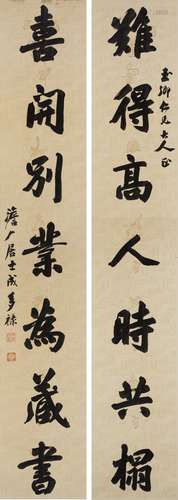 難得高人時共榻
玉卿仁兄大人正
喜開別業為藏書
澹厂居士成多祿